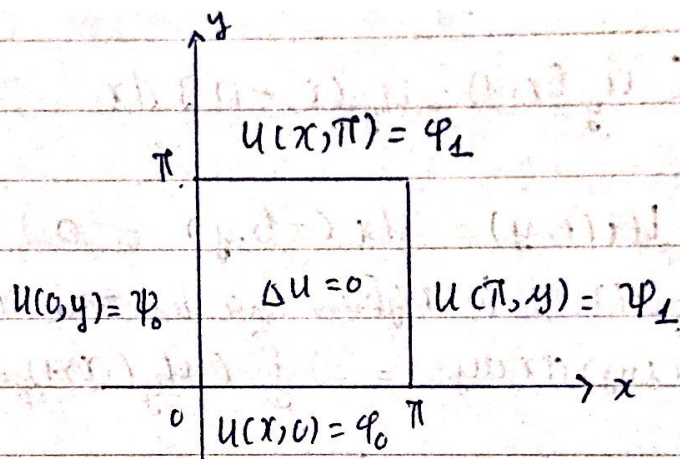 y
U(x,π) = φ₁
π
U(0,y) = ψ₀ ΔU = 0 U(π,y) = ψ₁
x
0 U(x,0) = φ₀ π